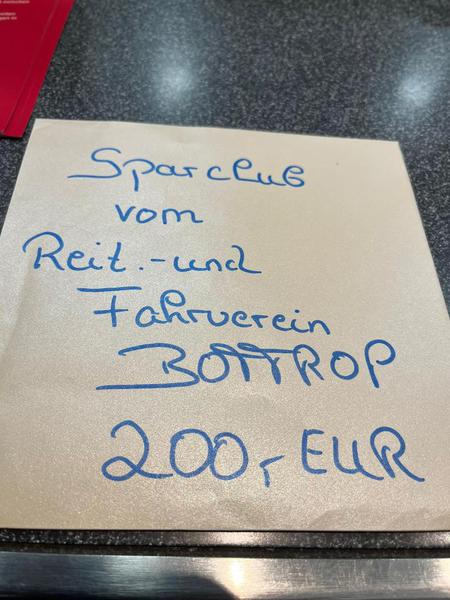 Sparclub
vom
Reit.-und
Fahrverein
BOTTROP
200,- EUR